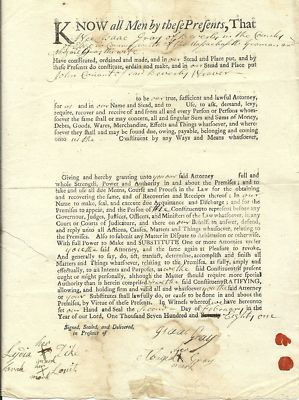 KNOW all Men by these Presents, That
We Isaac Gray of Beverly in the County
Have constituted, ordained and made, and in our Stead and Place put, and by
these Presents do constitute, ordain and make, and in our Stead and Place put
John
to be our true, sufficient and lawful Attorney,
for us and in our Name and Stead, and to Use, to ask, demand, levy,
require, recover and receive of and from all and every Person or Persons whom-
soever the same shall or may concern, all and singular Sum and Sums of Money,
Debts, Goods, Wares, Merchandize, Effects and Things whatsoever, and where-
soever they shall and may be found due, owing, payable, belonging and coming
unto the Constituent by any Ways and Means whatsoever,
Giving and hereby granting unto said Attorney full and
whole Strength, Power and Authority in and about the Premises; and to
take and use all due Means, Course and Process in the Law for the obtaining
and recovering the same, and of Recoveries and Receipts thereof; in our
Name to make, seal, and execute due Acquittance and Discharge; and for the
Premises to appear, and the Person of the Constituent to represent before any
Governor, Judges, Justices, Officers, and Ministers of the Law whatsoever, in any
Court or Courts of Judicature, and there on our Behalf, to answer, defend,
and reply unto all Actions, Causes, Matters and Things whatsoever, relating to the
Premises. Also to submit any Matter in Dispute to Arbitration or otherwise.
With full Power to Make and SUBSTITUTE One or more Attornies under
said Attorney, and the same again at Pleasure to revoke.
And generally to say, do, act, transact, determine, accomplish and finish all
Matters and Things whatsoever, relating to the Premises, as fully, amply and
effectually, to all Intents and Purposes, as the said Constituent if present
ought or might personally, although the Matter should require more special
Authority than is herein comprised, the said Constituent RATIFYING,
allowing, and holding firm and valid all and whatsoever said Attorney
or Substitutes shall lawfully do, or cause to be done in and about the
Premises, by Virtue of these Presents. In Witness whereof we have hereunto
set our Hand and Seal the Second Day of February in the
Year of our Lord, One Thousand Seven Hundred and Eighty one
Signed, Sealed, and Delivered,
in Presence of
Isaac Gray
Lydia
her
mark
Gray
mark